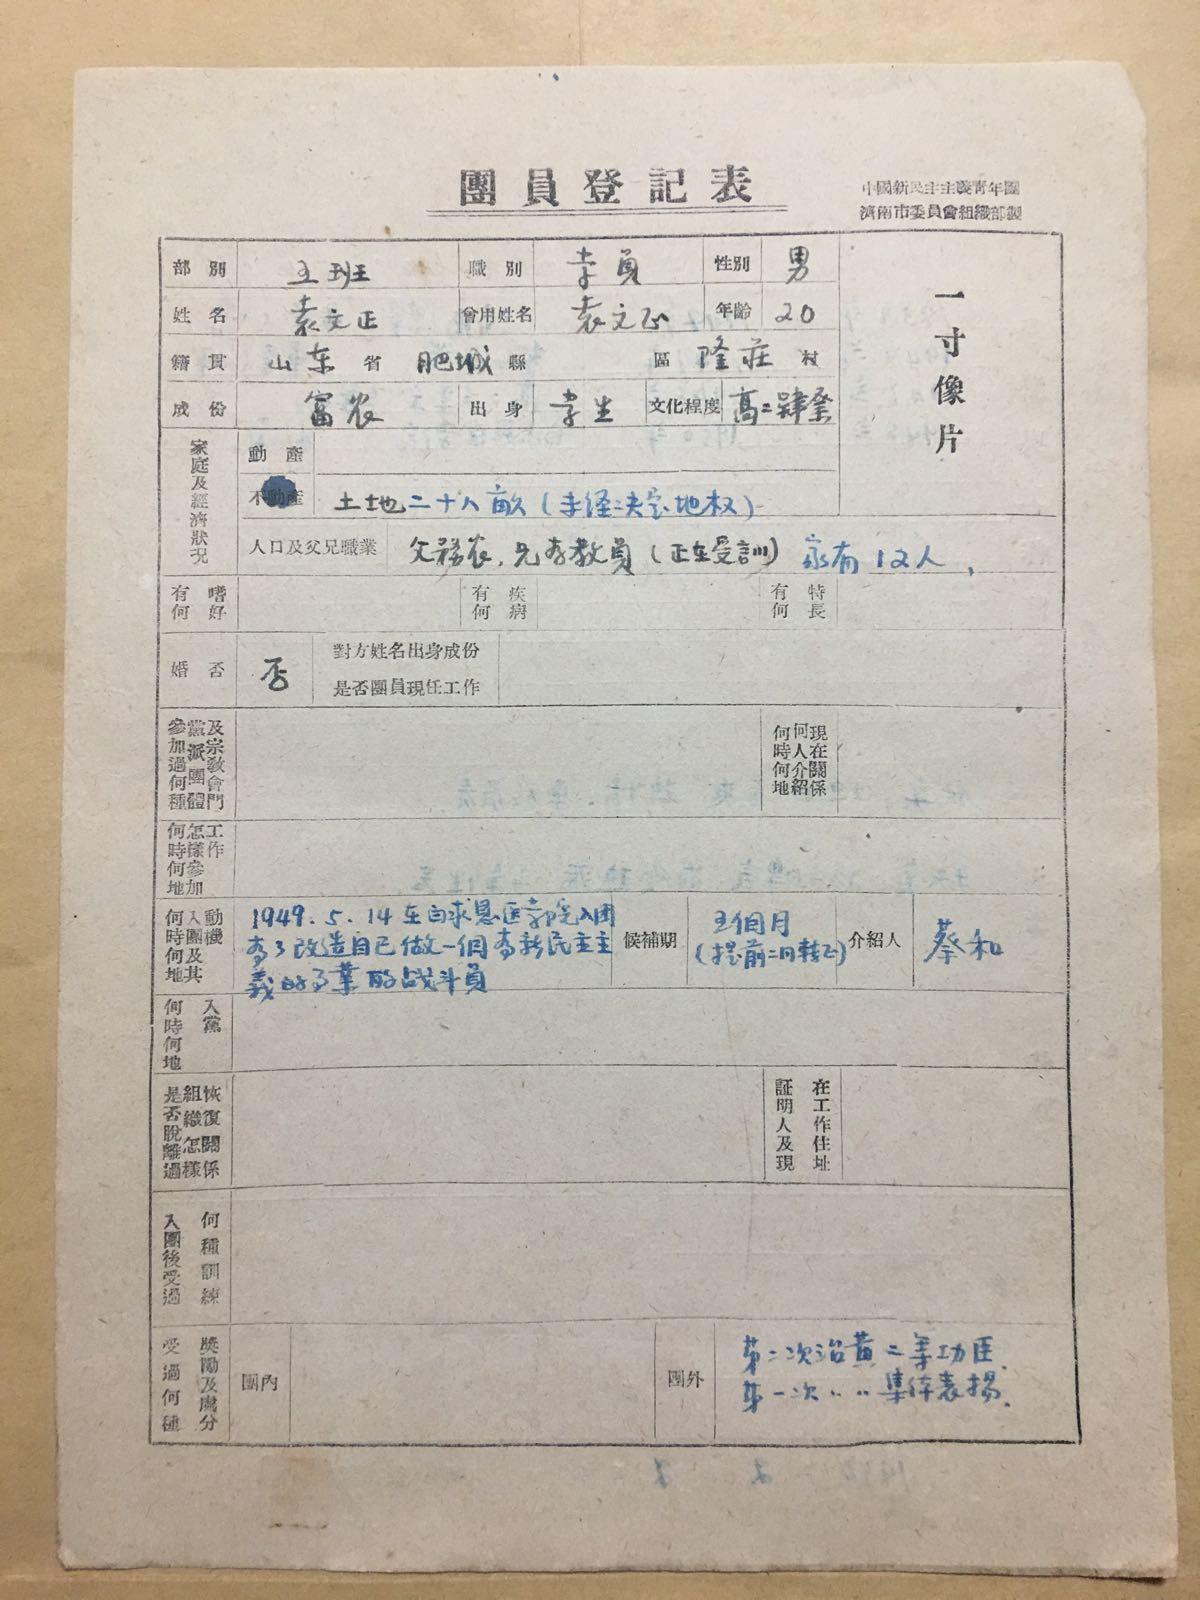 團員登記表
中國新民主主義青年團
濟南市委員會組織部製
部別 五班 職別 学員 性別 男
姓名 袁文正 曾用姓名 袁文正 年齡 20
籍貫 山东省 肥城縣 區 隆莊村
成份 富农 出身 学生 文化程度 高二肄業
一寸像片
家庭及經濟狀況
動產
不動產 土地二十八畝(未经决定地权)
人口及父兄職業 父務农,兄为教員(正在受訓) 家有12人,
有何嗜好 有何疾病 有何特長
婚否 否 對方姓名出身成份
是否團員現任工作
參加過何種黨派團體及宗教會門 何時何地何人介紹現在關係
何時何地怎樣參加工作
何時何地入團及其動機 1949.5.14在白求恩医学院入团
为了改造自己做一個为新民主主
義的事業的战斗員
候補期 五個月
(提前二月轉正)
介紹人 蔡和
何時何地入黨
是否脫離過組織怎樣恢復關係 証明人及現在工作住址
入團後受過何種訓練
受過何種獎勵及處分 團內 團外 第二次治黄二等功臣.
第一次〃〃集体表揚.